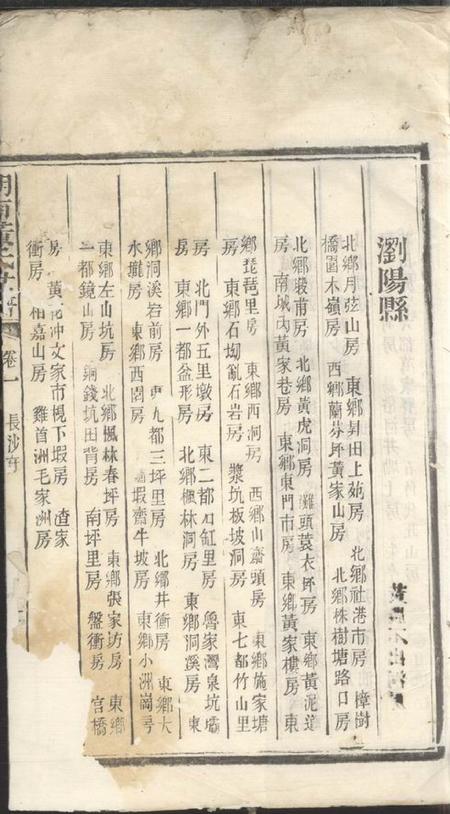 瀏陽縣
北鄉月弦山房　東鄉昇田上苑房　北鄉社港市房　樟樹
橋園木嶺房　西鄉蘭芬坪黃家山房　北鄉株樹塘路口房
北鄉嵗前房　北鄉黃虎洞房　灘頭蓑衣坪房　東鄉黃泥
房　南城內黃家巷房　東鄉東門市房　東鄉黃家樓房　東
鄉琵琶里房　東鄉西洞房　西鄉山齋頭房　東鄉施家塘
房　東鄉石坳亂石岩房　漿坑板坡洞房　東七都竹山里
房　北門外五里墩房　東二都石缸里房　魯家灣泉坑
房　東鄉一都盆形房　北鄉楓林洞房　東鄉洞溪房　東
鄉洞溪岩前房　九都三坪里房　北鄉井衝房　東鄉大
水壠房　東鄉西園房　蝦齋牛坡房　東鄉小洲崗房
東鄉左山坑房　北鄉楓林春坪房　東鄉張家坊房　東鄉
一都鏡山房　銅錢坑田背房　南坪里房　盤衝房　宫橋
房　黃花沖文家市梘下塅房　渣家
衝房　柏嘉山房　雞首洲毛家洲房
卷一　長沙府